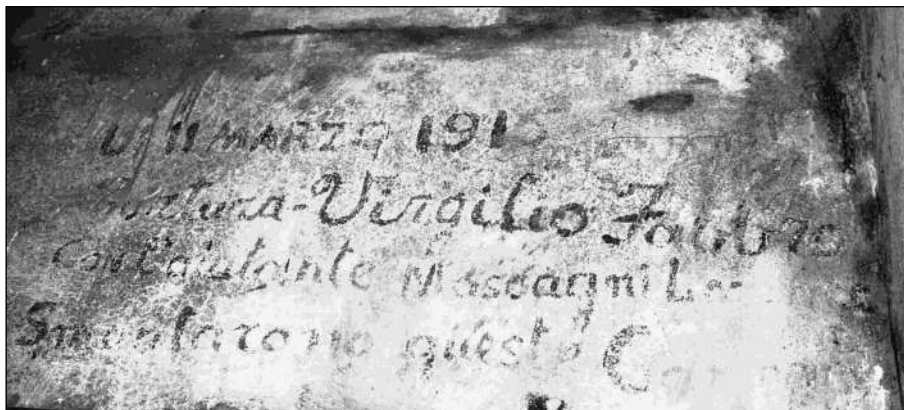 L' 11 MARZO 191
Virgilio Fabbro
Coll'aiutante Massagni L
Smontarono questo C